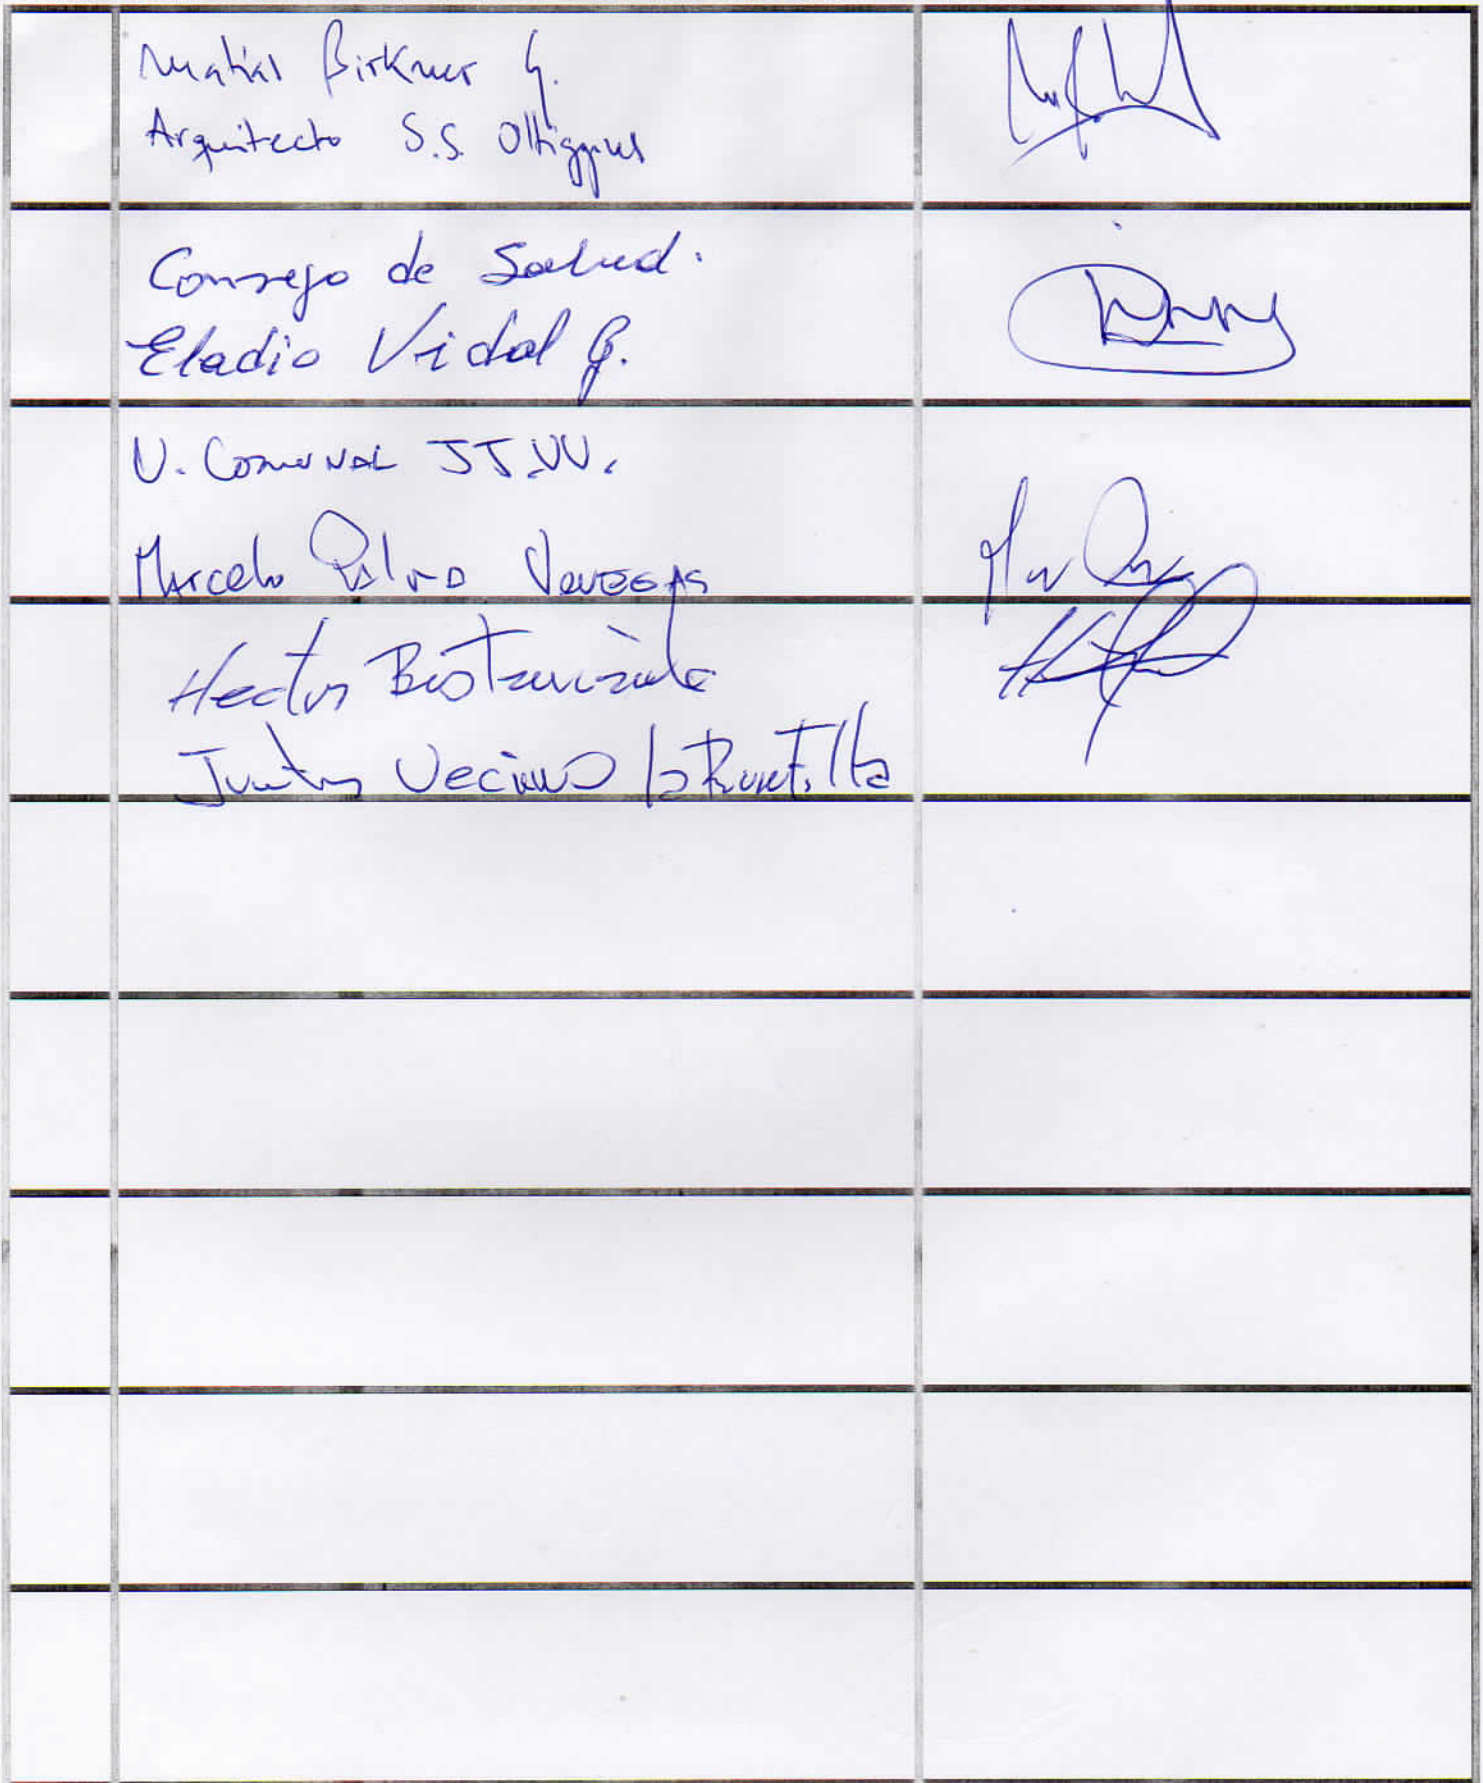 Matías Birkner G.
Arquitecto S.S. OHiggins
Consejo de Salud.
Eladio Vidal G.
U. Comunal JJ.VV.
Marcelo Venegas
Hector
Vecinos la Puntilla